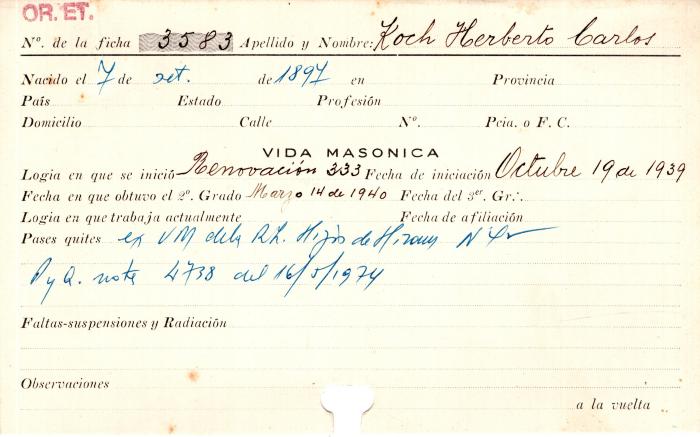 OR. ET.
Nº. de la ficha 3583 Apellido y Nombre: Koch Herberto Carlos
Nacido el 7 de set. de 1897 en Provincia
País Estado Profesión
Domicilio Calle Nº. Pcia. o F. C.
VIDA MASONICA
Logia en que se inició Renovación 333 Fecha de iniciación Octubre 19 de 1939
Fecha en que obtuvo el 2º. Grado Marzo 14 de 1940 Fecha del 3er. Gr∴
Logia en que trabaja actualmente Fecha de afiliación
Pases quites ex VM de la R.L. Hijos de Hiram
P y Q. nota 4738 del 16/5/1974
Faltas-suspensiones y Radiación
Observaciones
a la vuelta